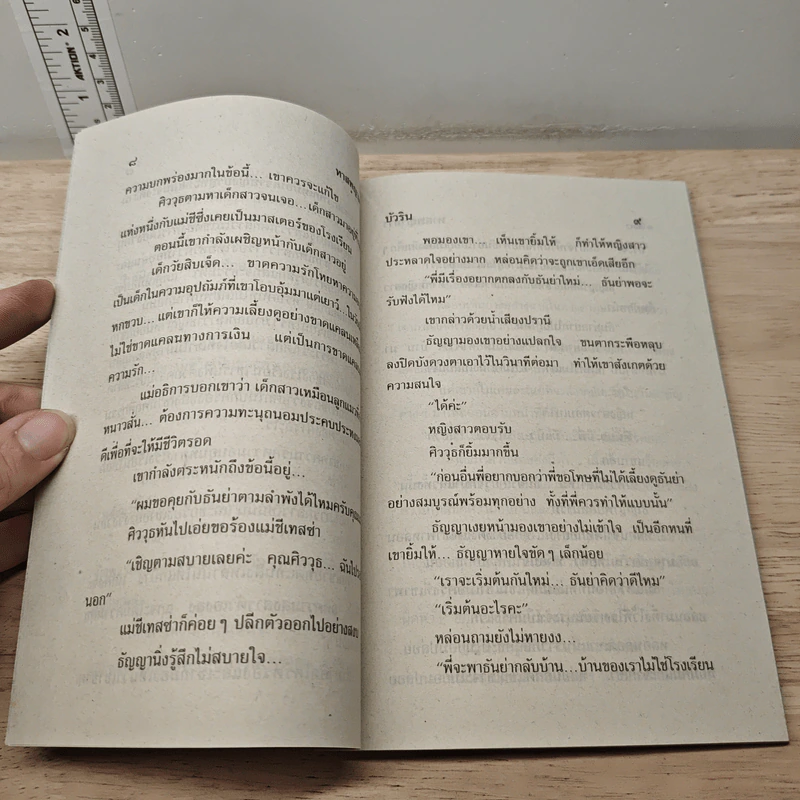 AKTION
1
2
5
6
๘
ความบกพร่องมากในข้อนี้... เขาควรจะแก้ไข
ศิววุธตามหาเด็กสาวจนเจอ...เด็กสาว
แห่งหนึ่งกับแม่ชีซึ่งเคยเป็นมาสเตอร์ของโรงเรียน
ตอนนี้เขากำลังเผชิญหน้ากับเด็กสาวอยู่
เด็กวัยสิบเจ็ด... ขาดความรักโหยหาความ
เป็นเด็กในความอุปถัมภ์ที่เขาโอบอุ้มมาแต่เยาว์...
หกขวบ... แต่เขาก็ให้ความเลี้ยงดูอย่างขาดแคลน
ไม่ใช่ขาดแคลนทางการเงิน แต่เป็นการขาดแคลน
ความรัก...
แม่อธิการบอกเขาว่า เด็กสาวเหมือนลูกแมว
หนาวสั่น... ต้องการความทะนุถนอมประคบประหงม
ดีเพื่อที่จะให้มีชีวิตรอด
เขากำลังตระหนักถึงข้อนี้อยู่...
“ผมขอคุยกับธันย่าตามลำพังได้ไหมครับ
ศิววุธหันไปเอ่ยขอร้องแม่ชีเทสซ่า
“เชิญตามสบายเลยค่ะ คุณศิววุธ...
นอก”
แม่ชีเทสซ่าก็ค่อย ๆ ปลีกตัวออกไปอย่าง
ธัญญานิ่งรู้สึกไม่สบายใจ...
บัวริน ๙
พอมองเขา... เห็นเขายิ้มให้ ก็ทำให้หญิงสาว
ประหลาดใจอย่างมาก หล่อนคิดว่าจะถูกเขาเอ็ดเสียอีก
“พี่มีเรื่องอยากตกลงกับธันย่าใหม่... ธันย่าพอจะ
รับฟังได้ไหม”
เขากล่าวด้วยน้ำเสียงปรานี
ธัญญามองเขาอย่างแปลกใจ ขนตากระพือหลุบ
ลงปิดบังดวงตาเอาไว้ในวินาทีต่อมา ทำให้เขาสังเกตด้วย
ความสนใจ
“ได้ค่ะ”
หญิงสาวตอบรับ
ศิววุธก็ยิ้มมากขึ้น
“ก่อนอื่นพี่อยากบอกว่าพี่ขอโทษที่ไม่ได้เลี้ยงดูธันย่า
อย่างสมบูรณ์พร้อมทุกอย่าง ทั้งที่พี่ควรทำแบบนั้น”
ธัญญาเงยหน้ามองเขาอย่างไม่เข้าใจ เป็นอีกหนที่
เขายิ้มให้... ธัญญาหายใจขัด ๆ เล็กน้อย
“เราจะเริ่มต้นกันใหม่... ธันย่าคิดว่าดีไหม”
“เริ่มต้นอะไรคะ”
หล่อนถามยังไม่หายงง...
“พี่จะพาธันย่ากลับบ้าน...บ้านของเราไม่ใช่โรงเรียน